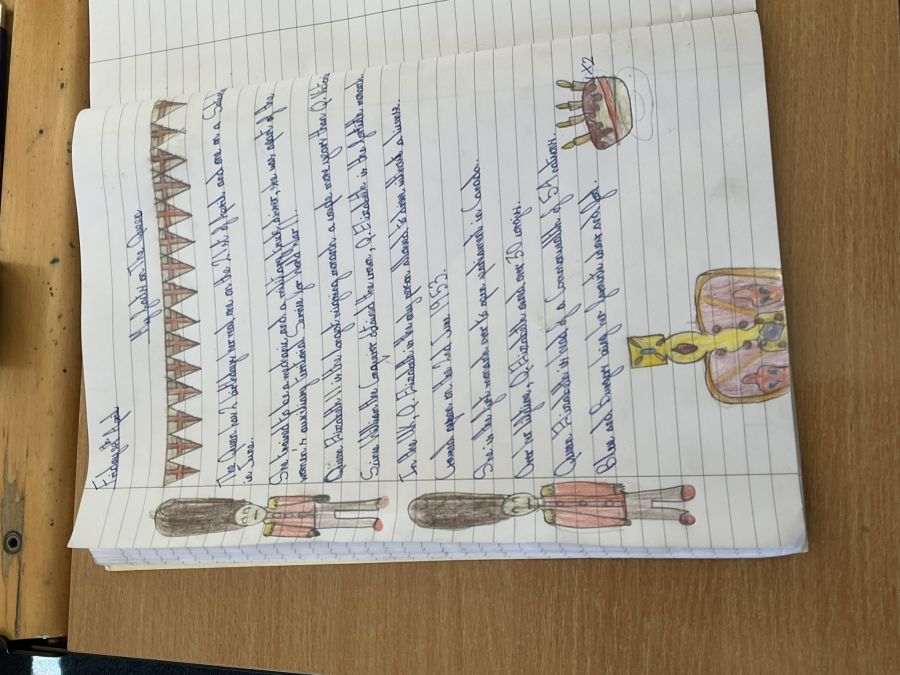 Friday April
My facts on The Queen
The Queen has 2 birthdays normal one on the 21st of April and one on a
in June.
She trained to be a mechanic and a military truck driver, she was apart of the
women's auxiliary Territorial Service for World War II.
Queen Elizabeth II is the longest reigning monarch a couple more years than Q.
Since William the Conqueror the crown, Q. Elizabeth is the fortieth monarch.
In the UK, Q. Elizabeth is the only person allowed to drive without a
Crowned queen on the 2nd June 1953.
She is the first monarch ever to open parliament in Canada.
Over her lifetime, Q. Elizabeth owned over 30
Queen Elizabeth is head of a Commonwealth of 54 nations.
Blue and her favourite colour and food.
x2